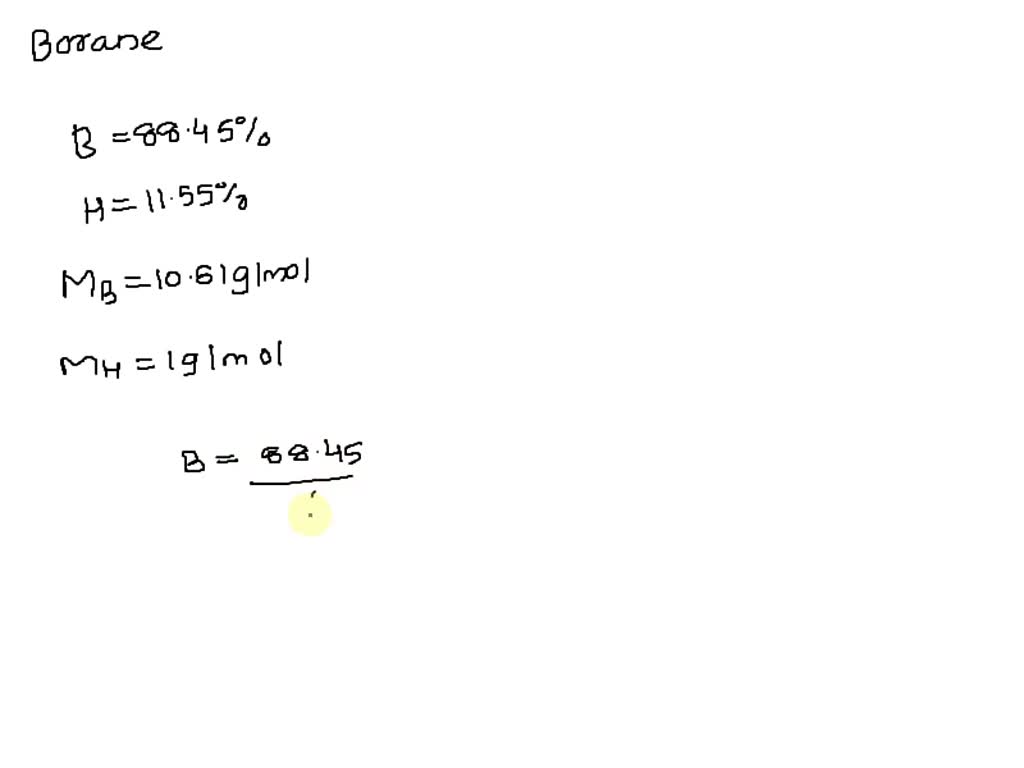 Borane
B = 88.45%
H = 11.55%
MB = 10.81g/mol
MH = 1g/mol
B = 88.45